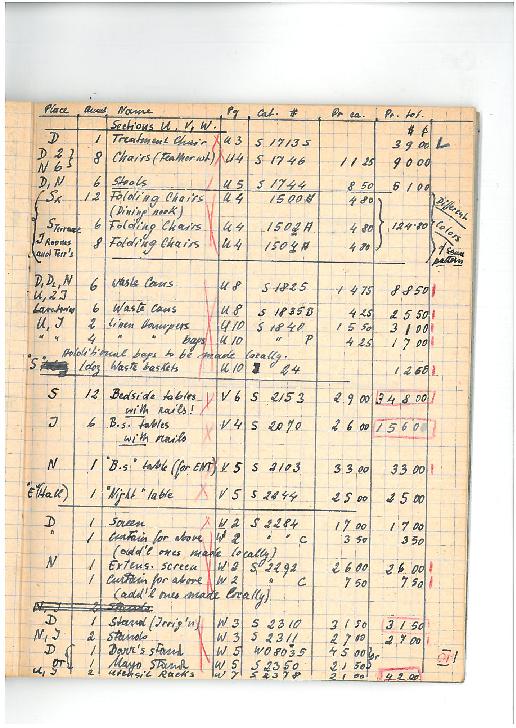 Place Quant Name Pg Cat. # Pr ea. Pr. tot.
Sections U. V. W. $ ¢
D 1 Treatment Chair U3 S 1713S 39 00
D 2 } 8 Chairs (Featherwt) U4 S 1746 11 25 90 00
N 6
D, N 6 Stools U5 S 1744 8 50 51 00
12 Folding Chairs U4 1500A 4 80
(Dining nook)
S Terrace 6 Folding Chairs U4 1502A 4 80 124.80
J Rooms 8 Folding Chairs U4 1504A 4 80
and Terr's
Different Colors of same pattern
D, D2, N 6 Waste Cans U8 S 1825 14 75 88 50
U, 2J
Lavatories 6 Waste Cans U8 S 1835D 4 25 25 50
U, J 2 Linen hampers U10 S 1840 15 50 31 00
" " 4 " bags U10 " P 4 25 17 00
Additional bags to be made locally.
"S" 1 doz Waste baskets U10 24 12 60
S 12 Bedside tables V6 S 2153 29 00 348 00
with rails!
J 6 B.s. tables V4 S 2070 26 00 156 00
with rails
N 1 "B.s" table (for ENT) V5 S 2103 33 00 33 00
1 "Night" table V5 S 2244 25 00 25 00
D 1 Screen W2 S 2284 17 00 17 00
" 1 Curtain for above W2 " " C 3 50 3 50
(add'l ones made locally)
N 1 Extens. screen W2 S 2292 26 00 26 00
1 Curtain for above W2 " C 7 50 7 50
(add'l ones made locally).
N, J 2 Stands
D 1 Stand (Irrig'n) W3 S 2310 31 50 31 50
N, J 2 Stands W3 S 2311 27 00 27 00
D 1 stand W5 W08035 45 00 or
or 1 Mayo Stand W5 S 2350 21 50
2 Utensil Racks W7 S 2378 21 00 42 00